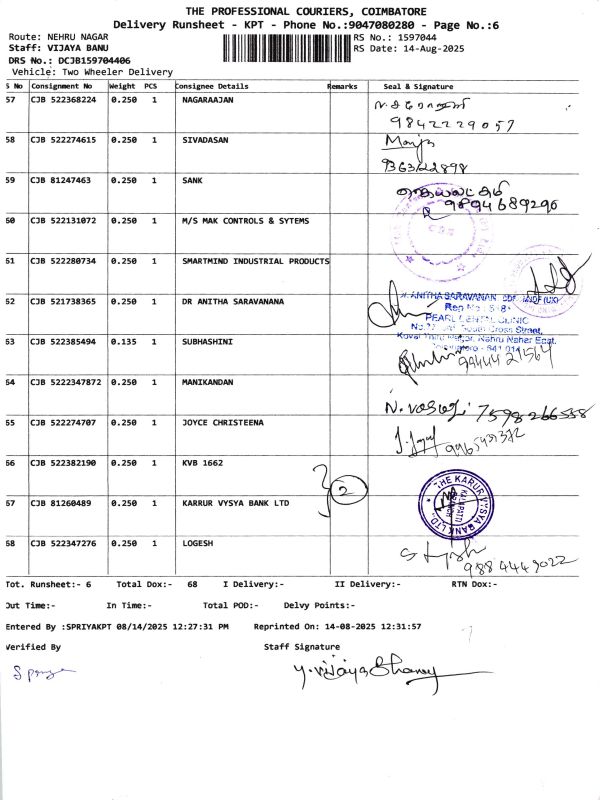 THE PROFESSIONAL COURIERS, COIMBATORE
Delivery Runsheet - KPT - Phone No.:9047080280 - Page No.:6
Route: NEHRU NAGAR RS No.: 1597044
Staff: VIJAYA BANU RS Date: 14-Aug-2025
DRS No.: DCJB159704406
Vehicle: Two Wheeler Delivery
S No Consignment No Weight PCS Consignee Details Remarks Seal & Signature
57 CJB 522368224 0.250 1 NAGARAAJAN
9842229057
58 CJB 522274615 0.250 1 SIVADASAN
59 CJB 81247463 0.250 1 SANK
9894689290
60 CJB 522131072 0.250 1 M/S MAK CONTROLS & SYTEMS
61 CJB 522280734 0.250 1 SMARTMIND INDUSTRIAL PRODUCTS
62 CJB 521738365 0.250 1 DR ANITHA SARAVANANA
ANITHA SARAVANAN
PEARL DENTAL CLINIC
63 CJB 522385494 0.135 1 SUBHASHINI
9944421564
64 CJB 5222347872 0.250 1 MANIKANDAN
7598266558
65 CJB 522274707 0.250 1 JOYCE CHRISTEENA
66 CJB 522382190 0.250 1 KVB 1662
2
67 CJB 81260489 0.250 1 KARRUR VYSYA BANK LTD
THE KARUR VYSYA BANK LTD.
68 CJB 522347276 0.250 1 LOGESH
9884449022
Tot. Runsheet:- 6 Total Dox:- 68 I Delivery:- II Delivery:- RTN Dox:-
Out Time:- In Time:- Total POD:- Delvy Points:-
Entered By :SPRIYAKPT 08/14/2025 12:27:31 PM Reprinted On: 14-08-2025 12:31:57
Verified By Staff Signature